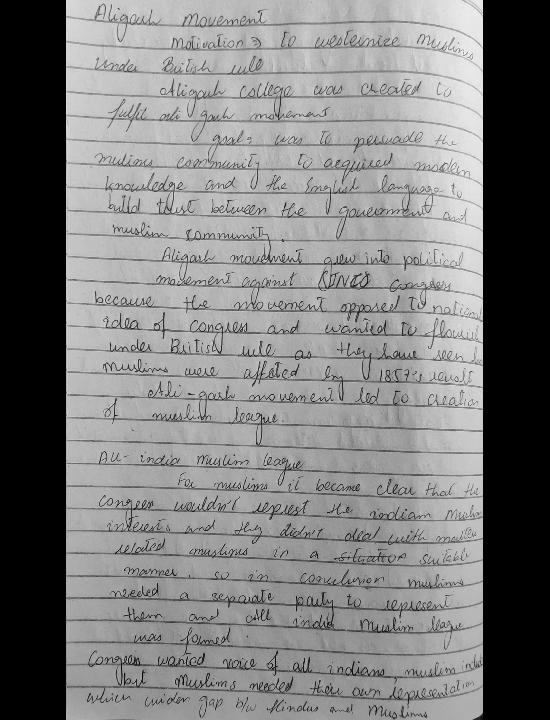 Aligarh Movement
Motivation → to westernize Muslims
under British rule
Aligarh college was created to
fulfil ali garh movement
goal: was to persuade the
mulims community to acquired modern
knowledge and the English language to
build trust between the government and
muslim community.
Aligarh movement grew into political
movement against congress
because the movement opposed to national
idea of congress and wanted to flourish
under British rule as they have seen
Muslims were affeted by 1857's revolt
Ali-garh movement led to creation
of muslim league.
All-india Muslim league
For muslims it became clear that the
congress wouldn't represt the indiam Muslim
interests and they didn't deal with matter
related muslims in a situation suitable
manner. so in conclusion muslims
needed a separate party to represent
them and All india Muslim league
was formed.
Congress wanted voice of all indians, muslim
but muslims needed their own representation
which widen gap b/w Hindus and Muslims